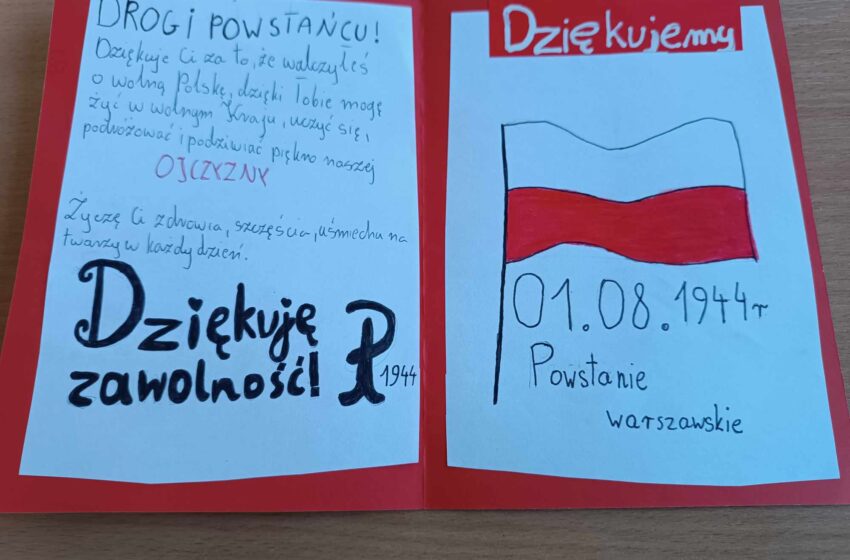 DROGI POWSTAŃCU!
Dziękuje Ci za to, że walczyłeś
o wolną Polskę, dzięki Tobie mogę
żyć w wolnym Kraju, uczyć się,
podróżować i podziwiać piękno naszej
OJCZYZNY
Życzę Ci zdrowia, szczęścia, uśmiechu na
twarzy w każdy dzień.
Dziękuję
zawolność!
1944
Dziękujemy
01.08.1944r
Powstanie
warszawskie